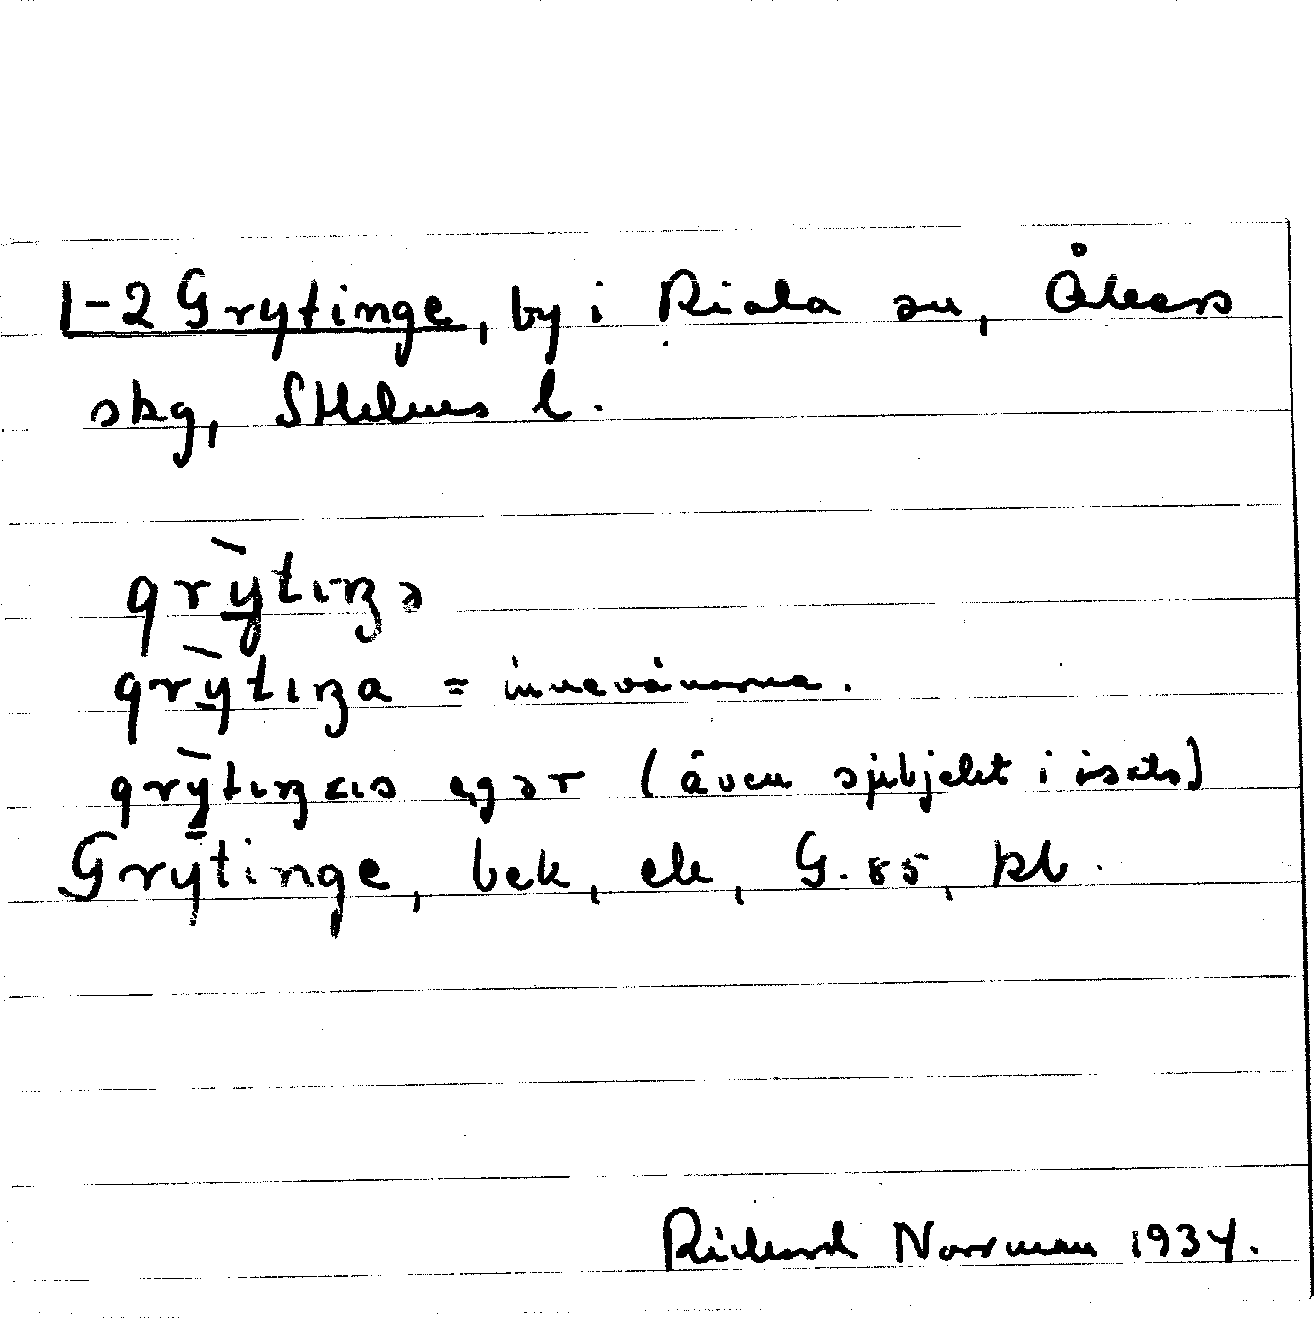 1-2 Grytinge, by i Riala sn, Åkers
skg, Sthlms l.
grỳ̱tıŋə
grỳ̱tıŋa = innevånarna.
grỳ̱tıŋɛıs ęgər (även subjekt i isats)
Grȳtinge, bek, ek, G. 85, kb.
Richard Norrman 1934.